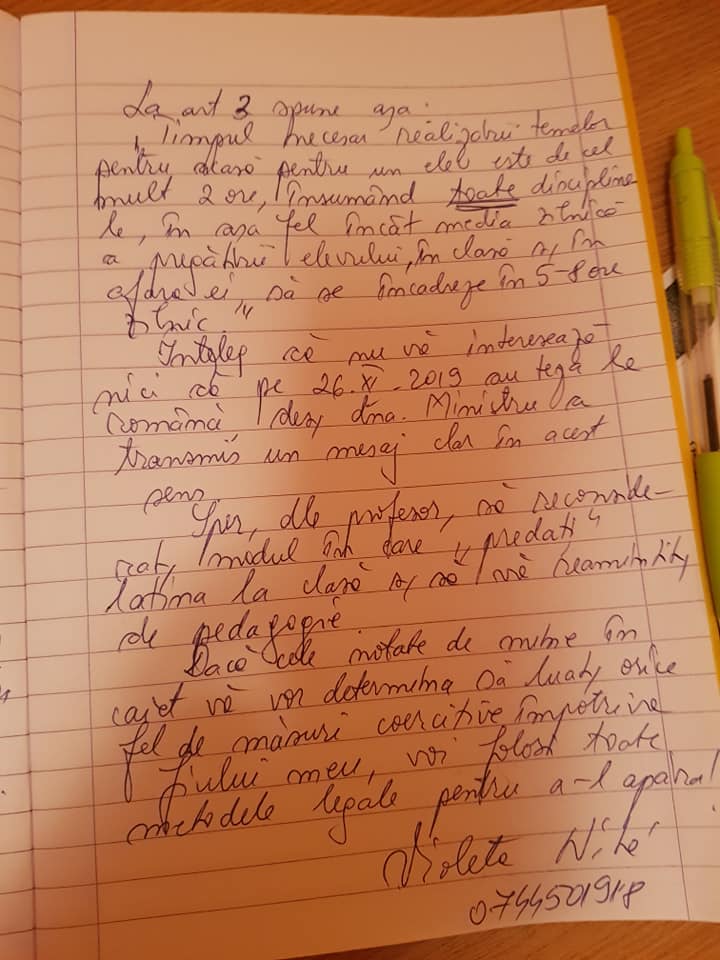 La art 3 spune așa:
„Timpul necesar realizării temelor
pentru acasă pentru un elev este de cel
mult 2 ore, însumând toate discipline
le, în așa fel încât media zilnică
a pregătirii elevului, în clasă și în
afara ei, să se încadreze în 5-8 ore
zilnic."
Înțeleg că nu vă interesează
nici că pe 26.XI.2019 au teză la
română deși dna. Ministru a
transmis un mesaj clar în acest
sens.
Sper, dle profesor, să reconside-
rați modul în care „predați"
latina la clasă și să vă reamintiți
de pedagogie.
Dacă cele notate de mine în
caiet vă vor determina să luați orice
fel de măsuri coercitive împotriva
fiului meu, voi folosi toate
metodele legale pentru a-l apăra!
Violeta
0744501918